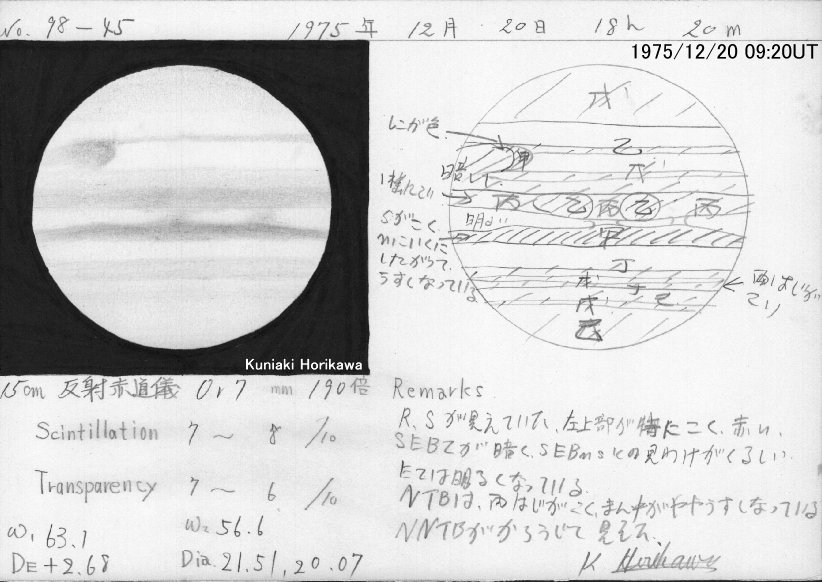 No. 98-45 1975年 12月 20日 18h 20m
1975/12/20 09:20UT
戊
にが色
乙
暗
丙 乙 丙 乙 丙
明るい
Sがこく
nにいくに
したがって
うすくなっている
甲
丁
戊
己
両はじが
こい
Kuniaki Horikawa
15cm 反射赤道儀 Or 7 mm 190倍
Scintillation 7 ~ 8 /10
Transparency 7 ~ 6 /10
ω₁ 63.1 ω₂ 56.6
DE + 2.68 Dia. 21.51, 20.07
Remarks
R, Sが見えていた、左上部が特にこく、赤い、
SEBZが暗く、SEBnsとの見わけがくるしい
EZは明るくなっている
NTBは、両はじがこく、まん中がややうすくなっている
NNTBがかろうじて見えた、
K Horikawa